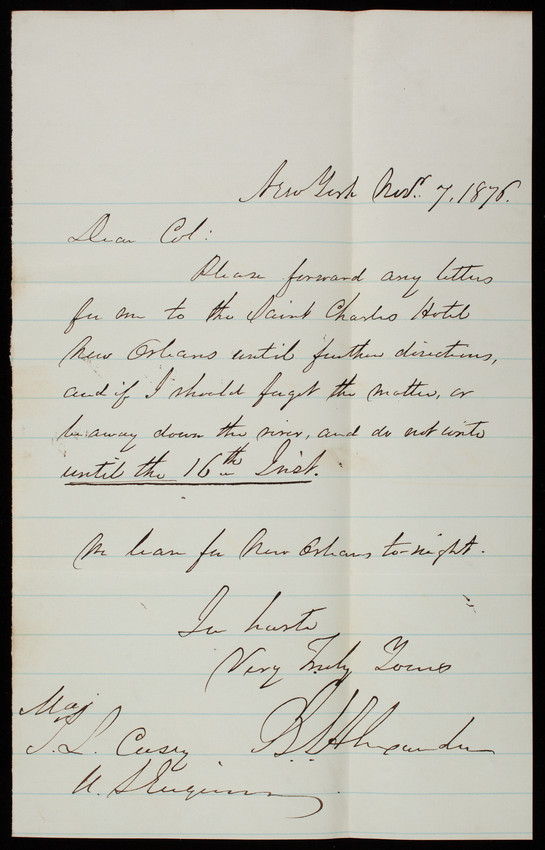 New York Novr. 7, 1876.
Dear Col:
Please forward any letters
for me to the Saint Charles Hotel
New Orleans until further directions,
and if I should forget the matter, or
be away down the river, and do not write
until the 16th Inst.
We leave for New Orleans to-night.
In haste
Very Truly Yours
B. S. Alexander
Maj
T. L. Casey
U. S. Engineers